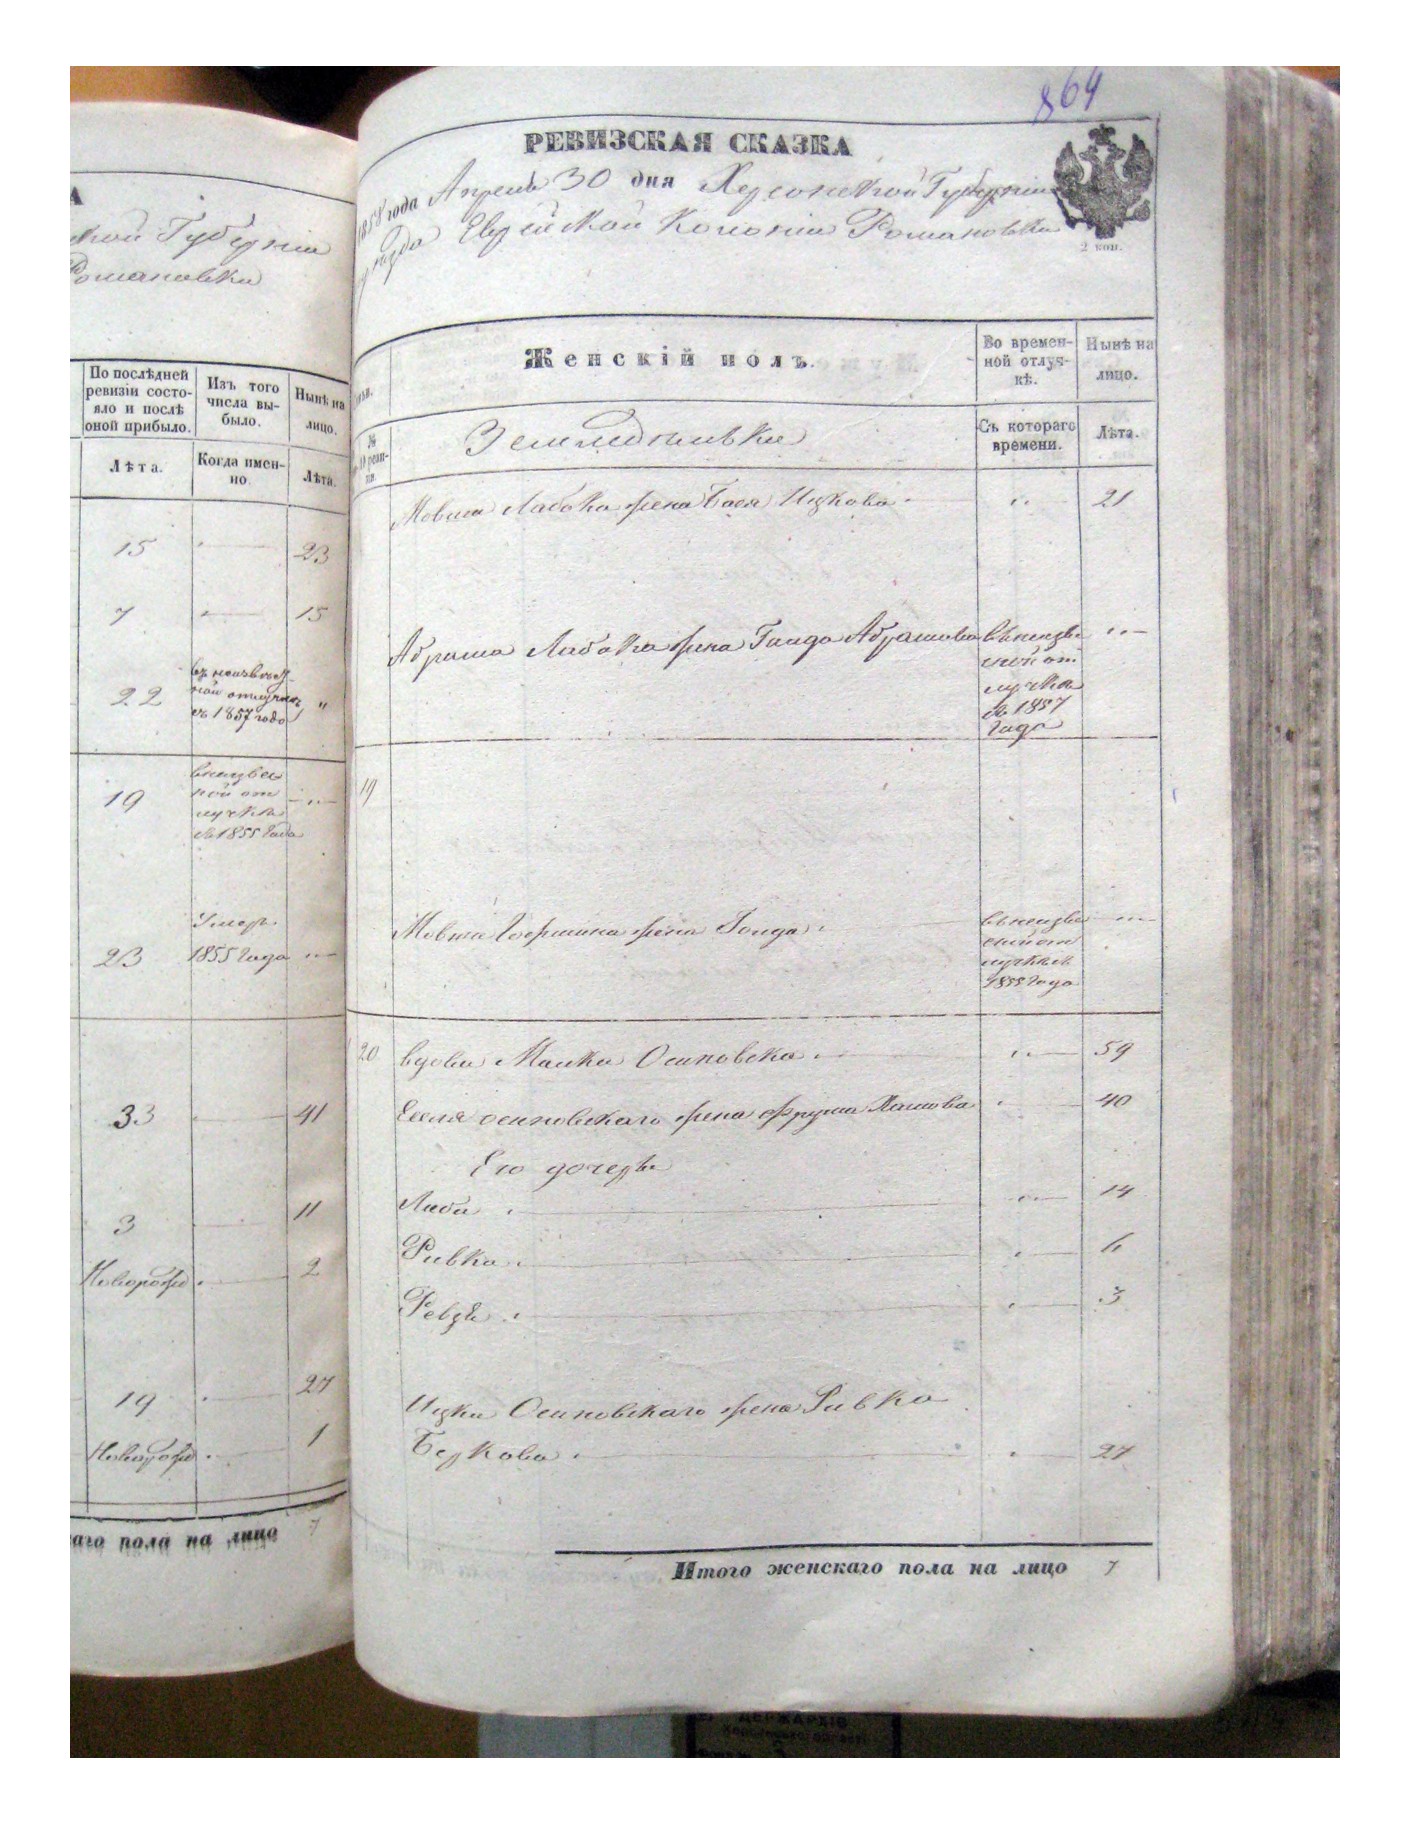 А
кой Губерніи
Романовки
По послѣдней
ревизіи состо-
яло и послѣ
оной прибыло.
Изъ того
числа вы-
было.
Нынѣ на
лицо.
Лѣта.
Когда имен-
но.
Лѣта.
15 23
7 15
22
ной отлучкѣ
съ 1857 года "
19
ной от
лучкѣ
съ 1855 года
Умеръ
23 1855 года
33 41
3 11
Новорожд 2
19 27
Новорожд 1
аго пола на лицо 7
864
РЕВИЗСКАЯ СКАЗКА
1858 года Апрель 30 дня Херсонской Губерніи
уѣзда Еврейской Колоніи Романовки
2 коп.
Женскій полъ.
Во времен-
ной отлуч-
кѣ.
Нынѣ на
лицо.
№
Съ котораго
времени.
Лѣта.
Земледѣлки
жена Бася Ицкова 21
Абрама жена Абрамова въ неизвѣ
стной от
лучкѣ
съ 1857
года
19
жена въ неизвѣ
стной от
лучкѣ съ
1855 года
20 вдова Малка Осиповска 59
Еселя Осиповскаго жена Фрума Хаимова 40
Его дочери
Либа 14
Ривка 6
Ревзе 3
Ицки Осиповскаго жена Ривка
Беркова 27
Итого женскаго пола на лицо 7
ДЕРЖАРХІВ